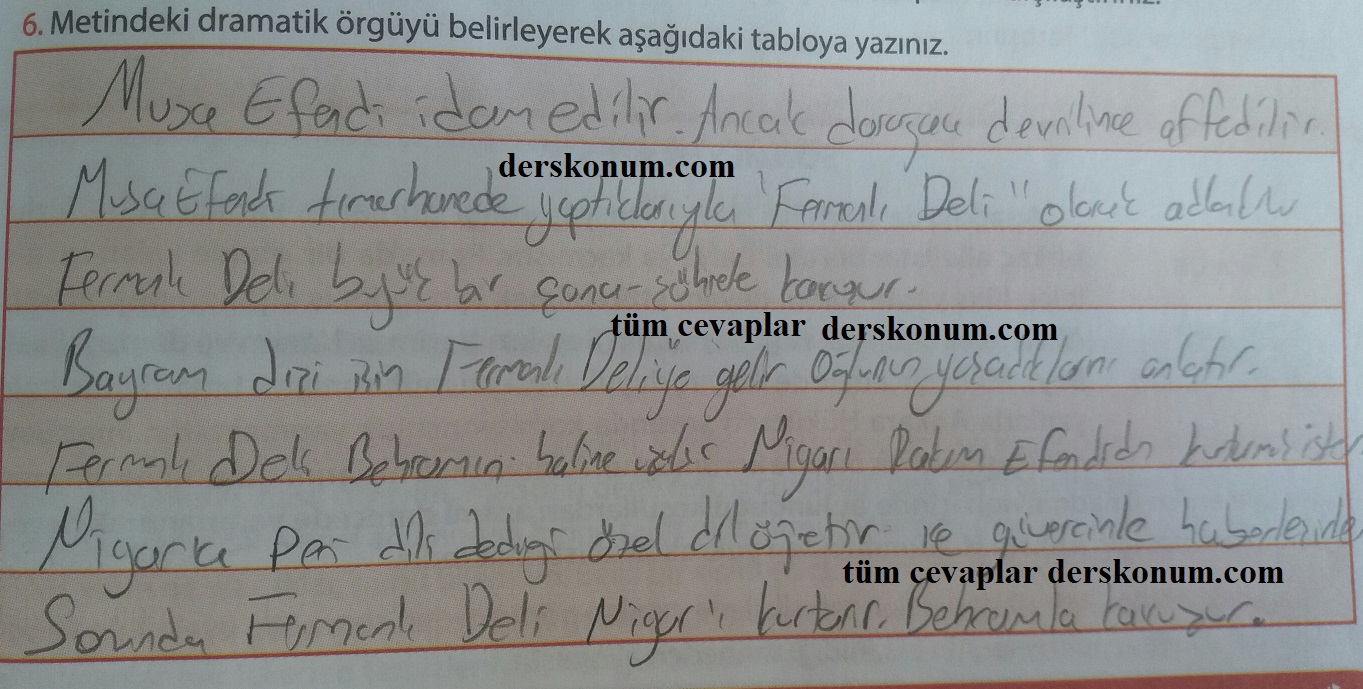 6. Metindeki dramatik örgüyü belirleyerek aşağıdaki tabloya yazınız.
Musa Efendi idam edilir. Ancak darağacı devrilince affedilir.
derskonum.com
Musa Efendi tımarhanede yaptıklarıyla "Fermanlı Deli" olarak
Fermanlı Deli büyük bir şana-şöhrete kavuşur.
tüm cevaplar derskonum.com
Bayram dizi için Fermanlı Deliye gelir Oğlunun yaşadıklarını anlatır.
Fermanlı Deli Behramın haline Nigarı Efendiden
tüm cevaplar derskonum.com
Nigarla Peri dili dediği özel dil öğretir ve güvercinle
Sonunda Fermanlı Deli Nigar'ı kurtarır. Behramla kavuşur.